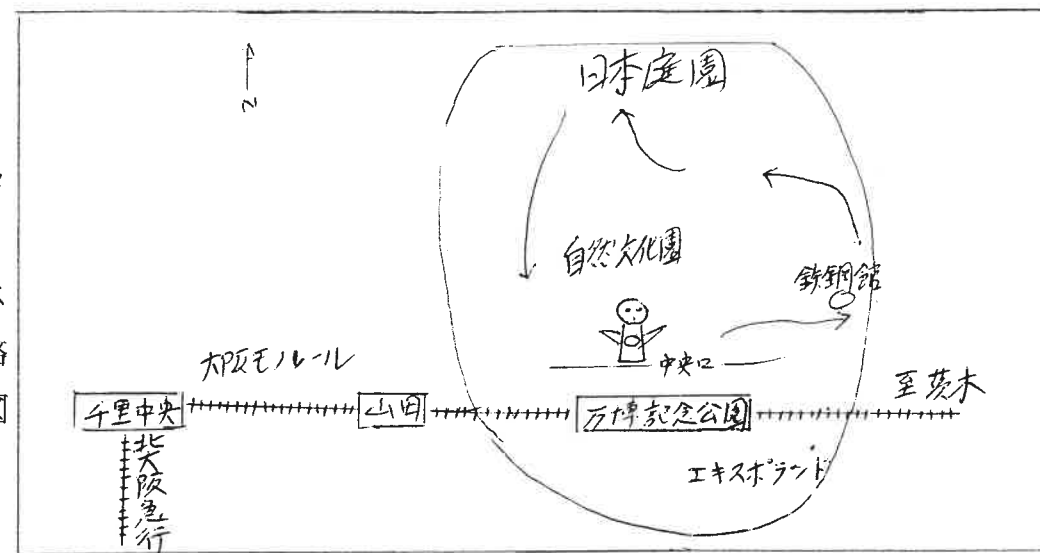 N
日本庭園
自然文化園
鉄鋼館
中央口
大阪モノレール
至茨木
千里中央
山田
万博記念公園
エキスポランド
北大阪急行